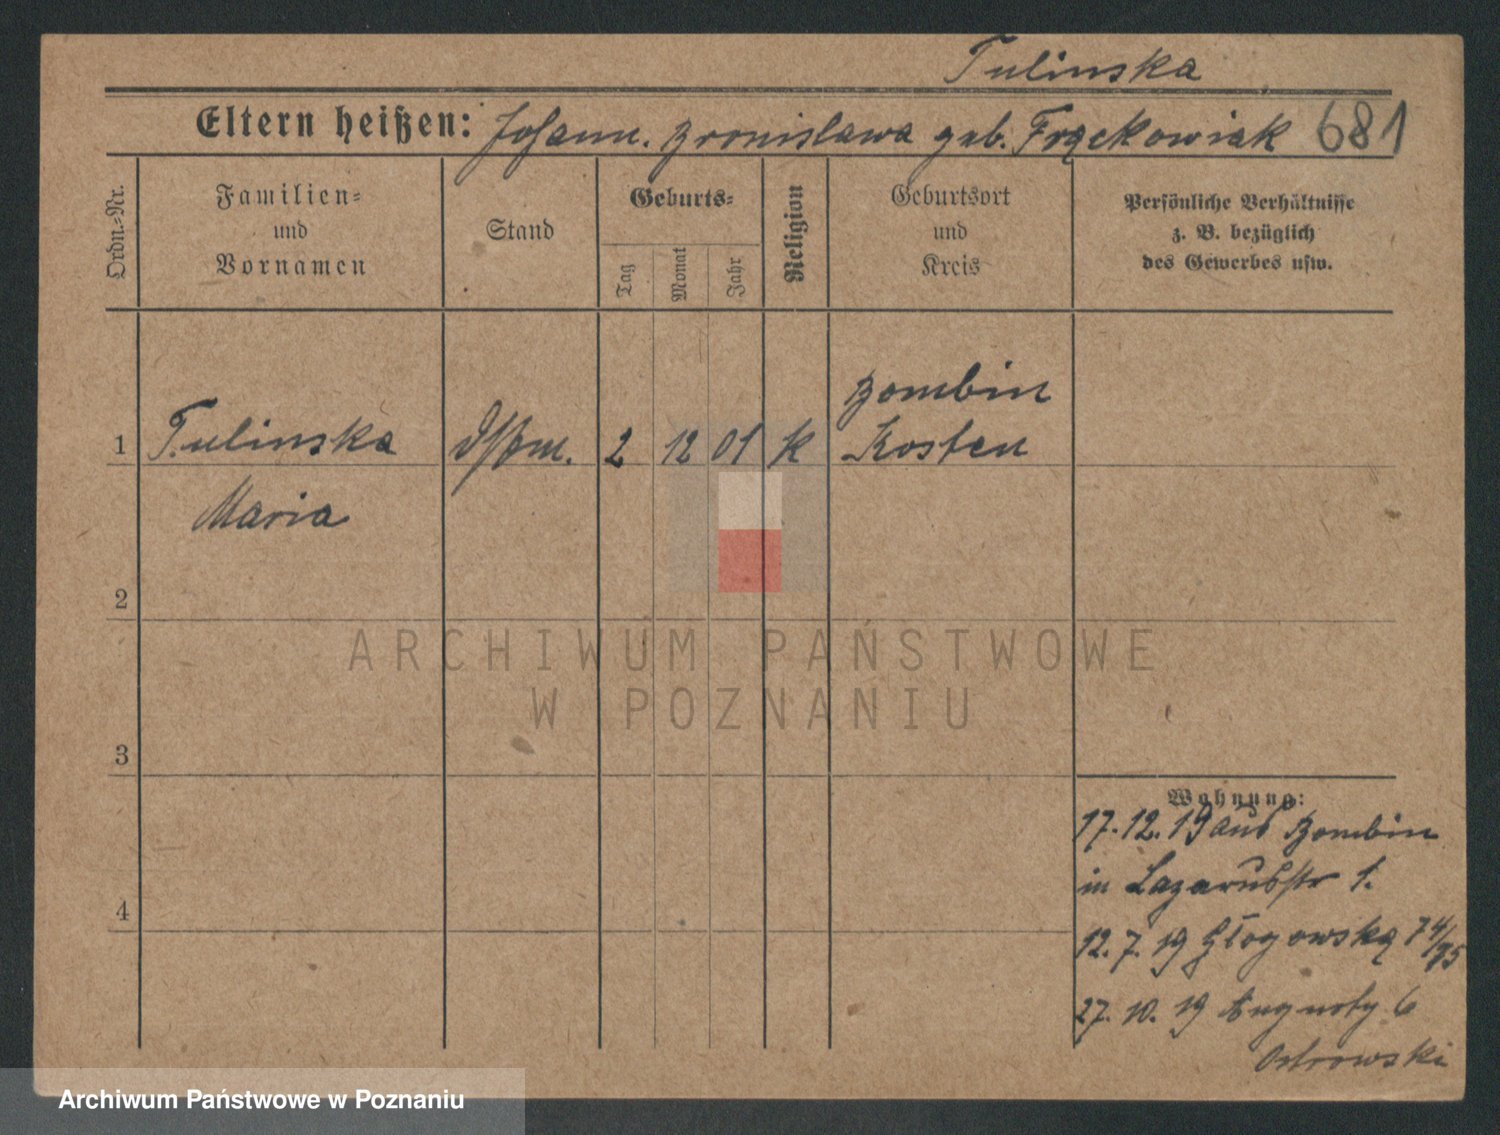 Tulinska
Eltern heißen: Johann. Bronislawa geb. Frąckowiak 681
Ordn.-Nr.
Familien-
und
Vornamen
Stand
Geburts-
Tag
Monat
Jahr
Religion
Geburtsort
und
Kreis
Persönliche Verhältnisse
z. B. bezüglich
des Gewerbes usw.
Bombin
1 Tulinska 2 12 01 k Kosten
Maria
2
3
4
Wohnung:
17.12.19 aus Bombin
in Lazarusstr 1.
12.7.19 Głogowską 74/75
27.10.19 6
Ostrowski
ARCHIWUM PAŃSTWOWE
W POZNANIU
Archiwum Państwowe w Poznaniu